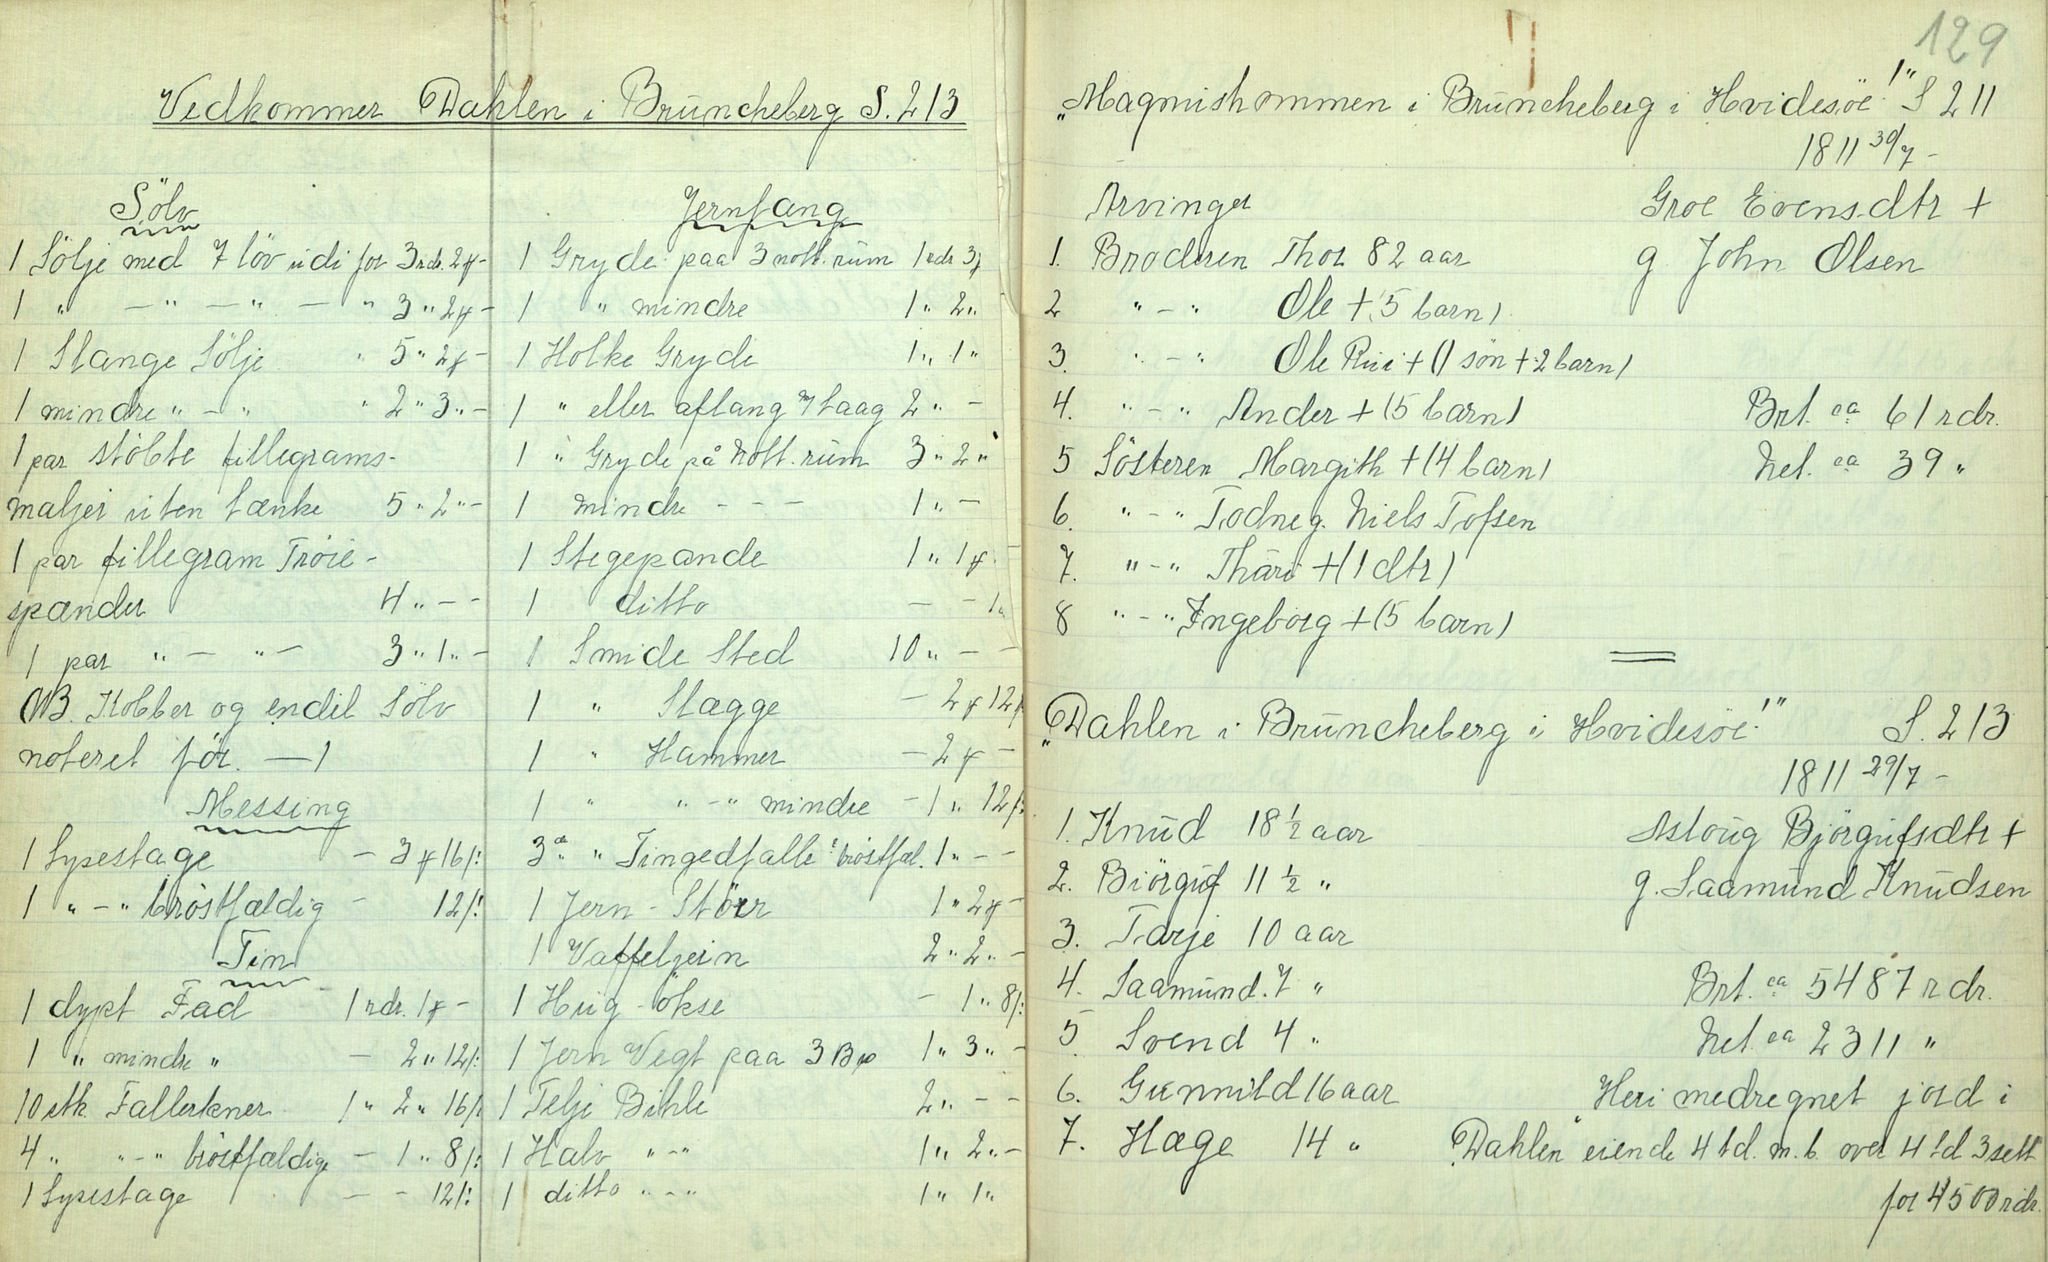 Vedkommer Dahlen i Brüncheberg S. 213
Sölv
1 Sölje med 7 löv udi for 3 rdr. 2 -
1 " - " - " - " 3 " 2 -
1 Slange Sölje " 5 " 2 -
1 mindre " - " " 2 " 3 " -
1 par stöbte fillegrams-
maljer uten lænke 5 " 2 " -
1 par fillegram Tröie-
spænder 4 " - -
1 par " - " - 3 " 1 " -
(NB. Kobber og endel Sölv
noteret för. — )
Messing
1 Lysestage - 3 16 /:
1 " - " bröstfældig - 12 /:
Tin
1 dypt Fad 1 rdr. 1 -
1 " mindre " - 2 " 12 /:
10 stk. Fallerkner 1 " 2 " 16 /:
4 " " - " bröstfældige - 1 " 8 /:
1 Lysestage - - 12 /:
Jernfang
1 Gryde paa 3 nott. rüm 1 rdr 3
1 " mindre 1 " 2 "
1 Holke Gryde 1 " 1 "
1 " eller aflang m/ laag 2 " -
1 " Gryde på nott. rüm 3 " 2 "
1 mindre - - - 1 " -
1 Stegepande 1 " 1
1 ditto - - 1 "
1 Smide Sted 10 " - -
1 " Slægge - 2 12 /:
1 " Hammer - 2 -
1 " " - " mindre - 1 " 12 /:
3 " Tingedfalle bröstfæl. 1 " - -
1 Jern - Störr 1 " 2 -
1 Vaffeljern 2 " 2 " -
1 Hüg - ökse - 1 " 8 /:
1 Jern Vegt paa 3 B 1 " 3 " -
1 Telje Bihle 2 " - -
1 Halv " - " 1 " 2 " -
1 ditto " - " 1 " 1 "
129
"Magmishommen i Brüncheberg i Hvidesöe!" S 211
1811 30/7 -
Arvinger Groe Evensdtr +
1. Broderen Thor 82 aar g. John Olsen
2 " - " Ole + (5 barn)
3. " - " Ole Rui + (1 sön + 2 barn)
4. " - " Ander + (5 barn) Brt. ca 61 rdr.
5 Sösteren Margith + (4 barn) Net. ca 39 "
6. " - " Todne g. Niels Tofsen
7. " - " Thäri + (1 dtr)
8 " - " Ingeborg + (5 barn)
"Dahlen i Brüncheberg i Hvidesöe!" S. 213
1811 29/7 -
1. Knüd 18 ½ aar Asloüg Björgufsdtr +
2. Biörgüf 11 ½ " g. Saamünd Knüdsen
3. Tarje 10 aar
4. Saamünd. 7 " Brt. ca 5487 rdr.
5. Svend 4 " Net. ca 2311 "
6. Gunnild 16 aar Heri medregnet jord i
7. Hæge 14 " "Dahlen" eiende 4 td. m. b. over 4 td 3 sett
for 4500 rdr.